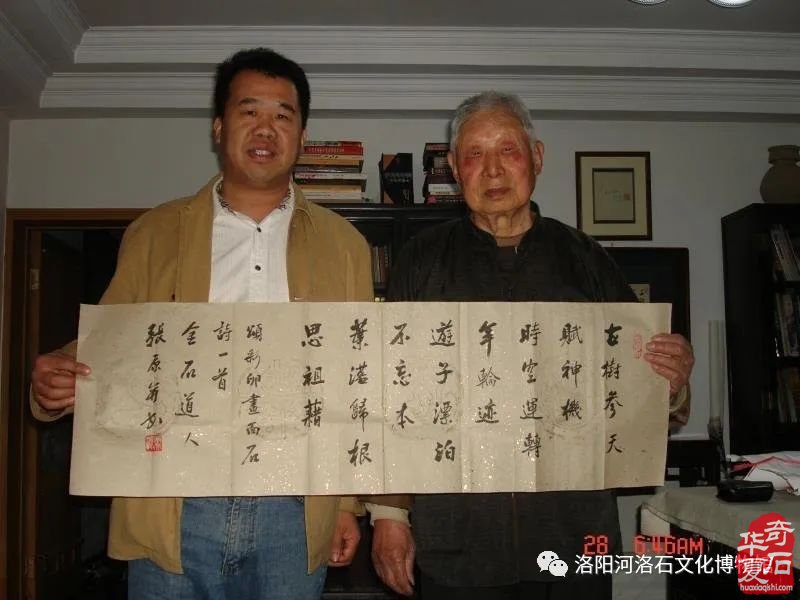 古樹參天
賦神機
時空運轉
年輪迹
遊子漂泊
不忘本
葉落歸根
思祖藉
頌彩卵畫面石
詩一首
金石道人
張原
28 6:46AM
洛阳河洛石文化博
华夏
奇石
huaxiaqishi.com